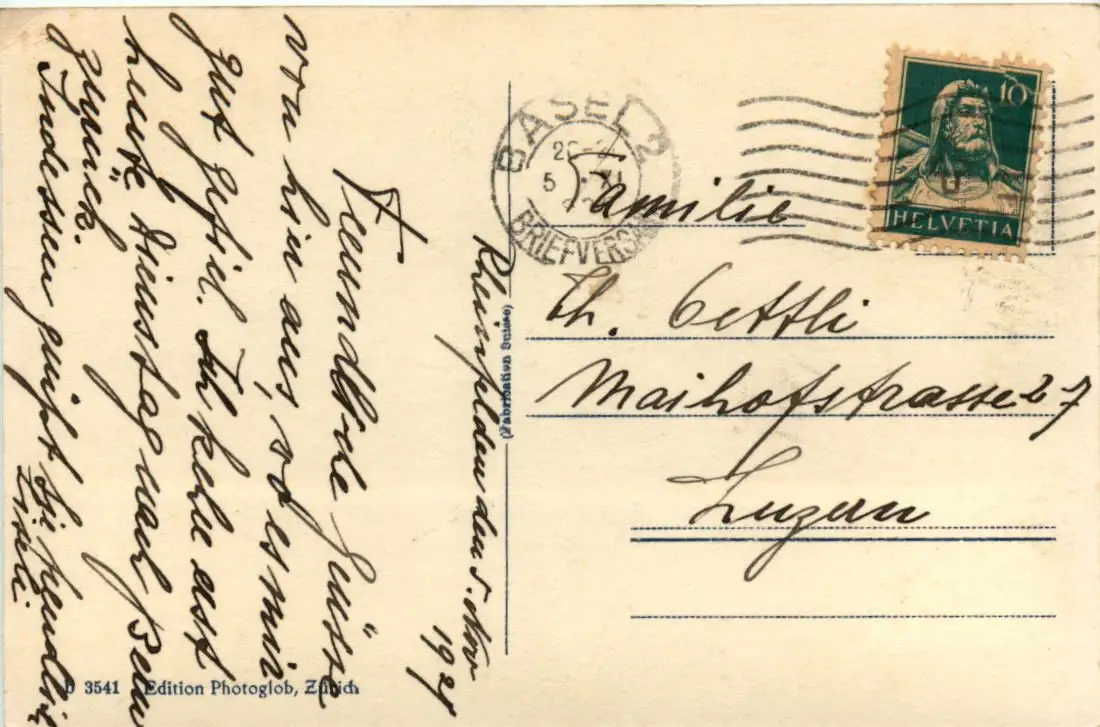 Rheinfelden den 5. Nov
1928
Freundliche Grüsse
von hier aus, wo es mir
gut gefiel. Ich kehre erst
heute Dienstag nach Bern
zurück.
Indessen grüsst Sie freundlich
BASEL 2
5 XI
BRIEFVERSAND
10
HELVETIA
Familie
Th. Oettli
Maihofstrasse 27
Luzern
(Fabrication Suisse)
3541 Edition Photoglob, Zürich